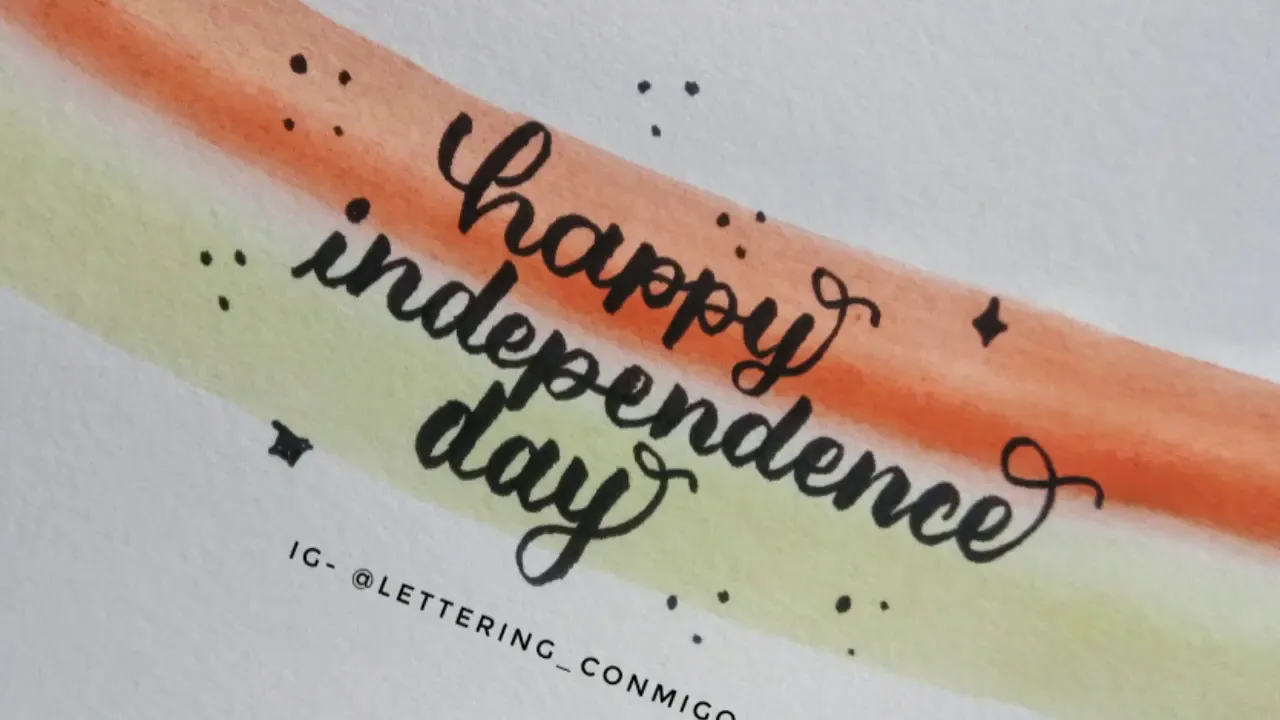 happy
independence
day
IG- @LETTERING_CONMIGO